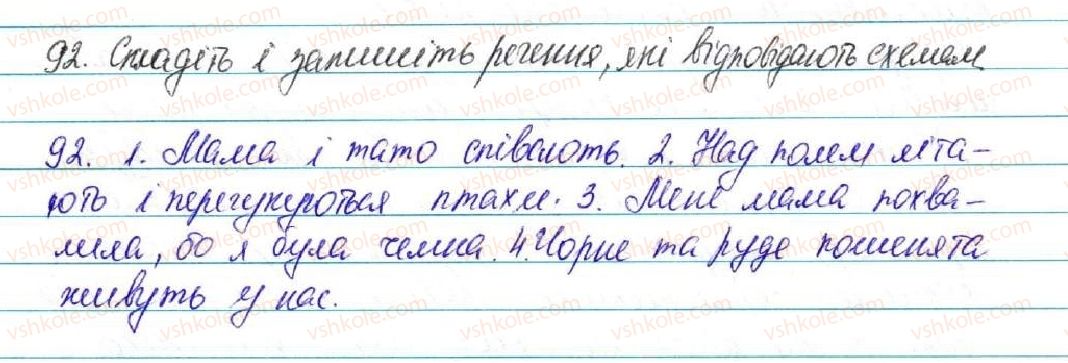 92. Складіть і запишіть речення, які відповідають схемам
92. 1. Мама і тато співають. 2. Над полем літа-
ють і перегукуються птахи. 3. Мене мама похва-
лила, бо я була чемна. 4. Чорне та руде кошенята
живуть у нас.
vshkole.com